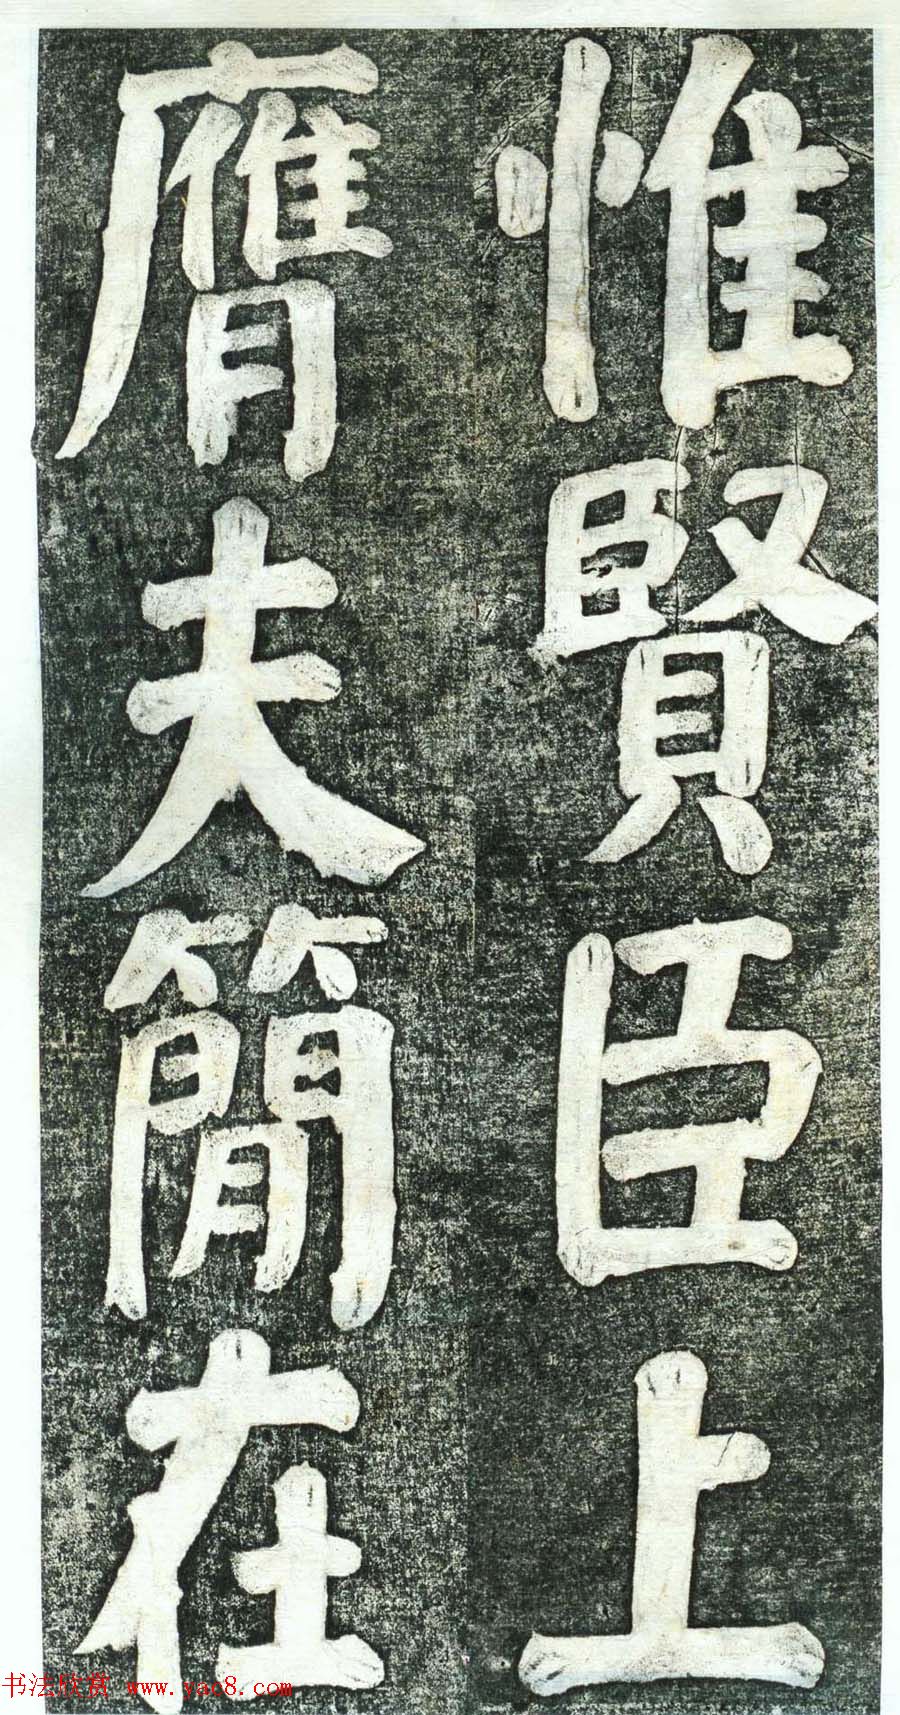 惟賢臣上
膺夫簡在
书法欣赏 www.yac8.com